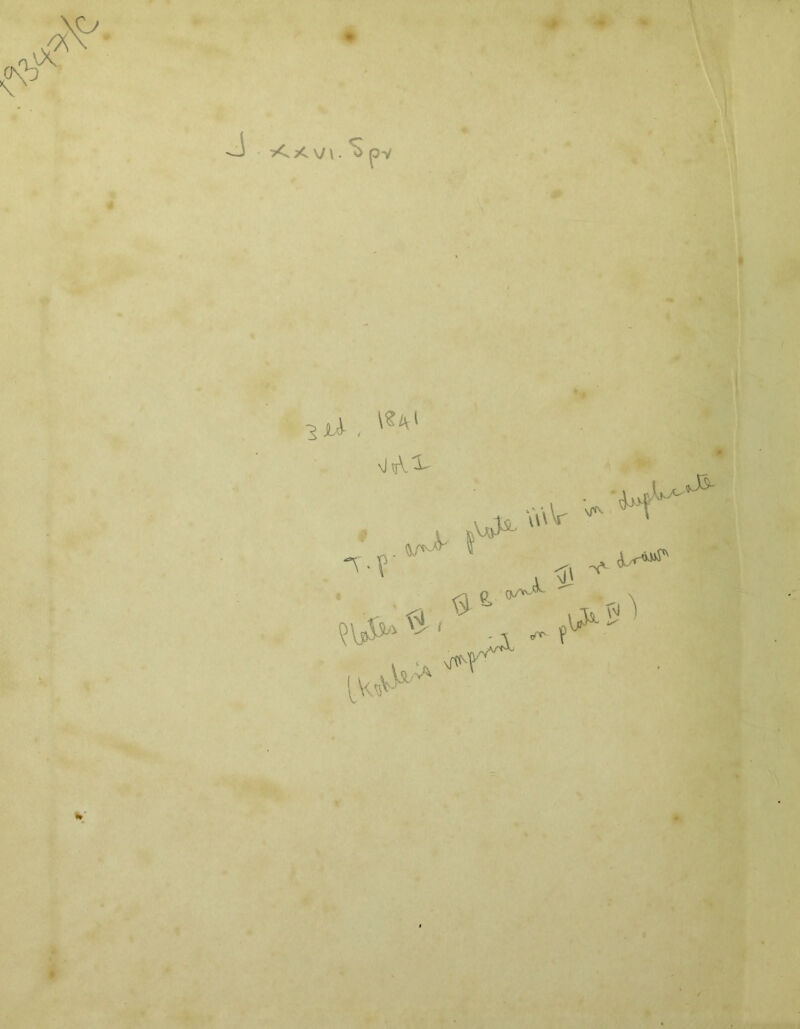 19347/C
J. xxvi. Spr
3 ed, 1841
Vol I
T.p. and plate iiib in duplicate
Plates IV, IV B and VI redrawn
(Kohler's imprint on plate IV)